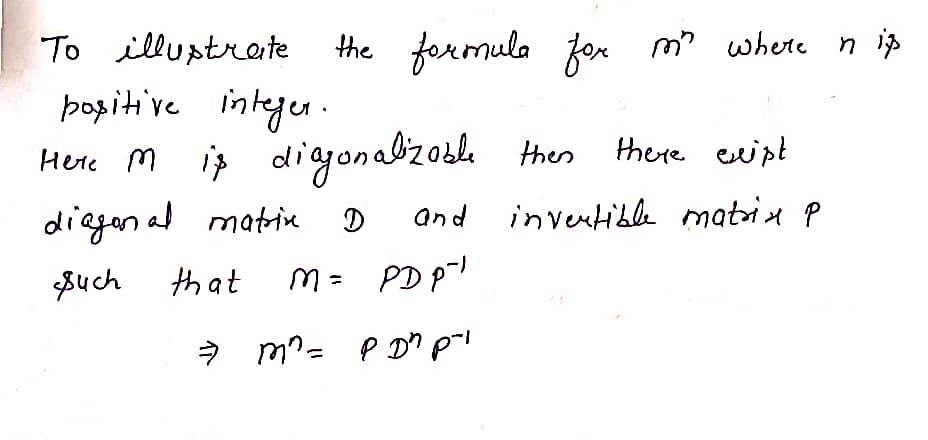 To illustrate the formula for mⁿ where n is
positive integer.
Here M is diagonalizable then there exist
diagonal matrix D and invertible matrix P
such that M = PDP⁻¹
⇒ mⁿ = P Dⁿ P⁻¹